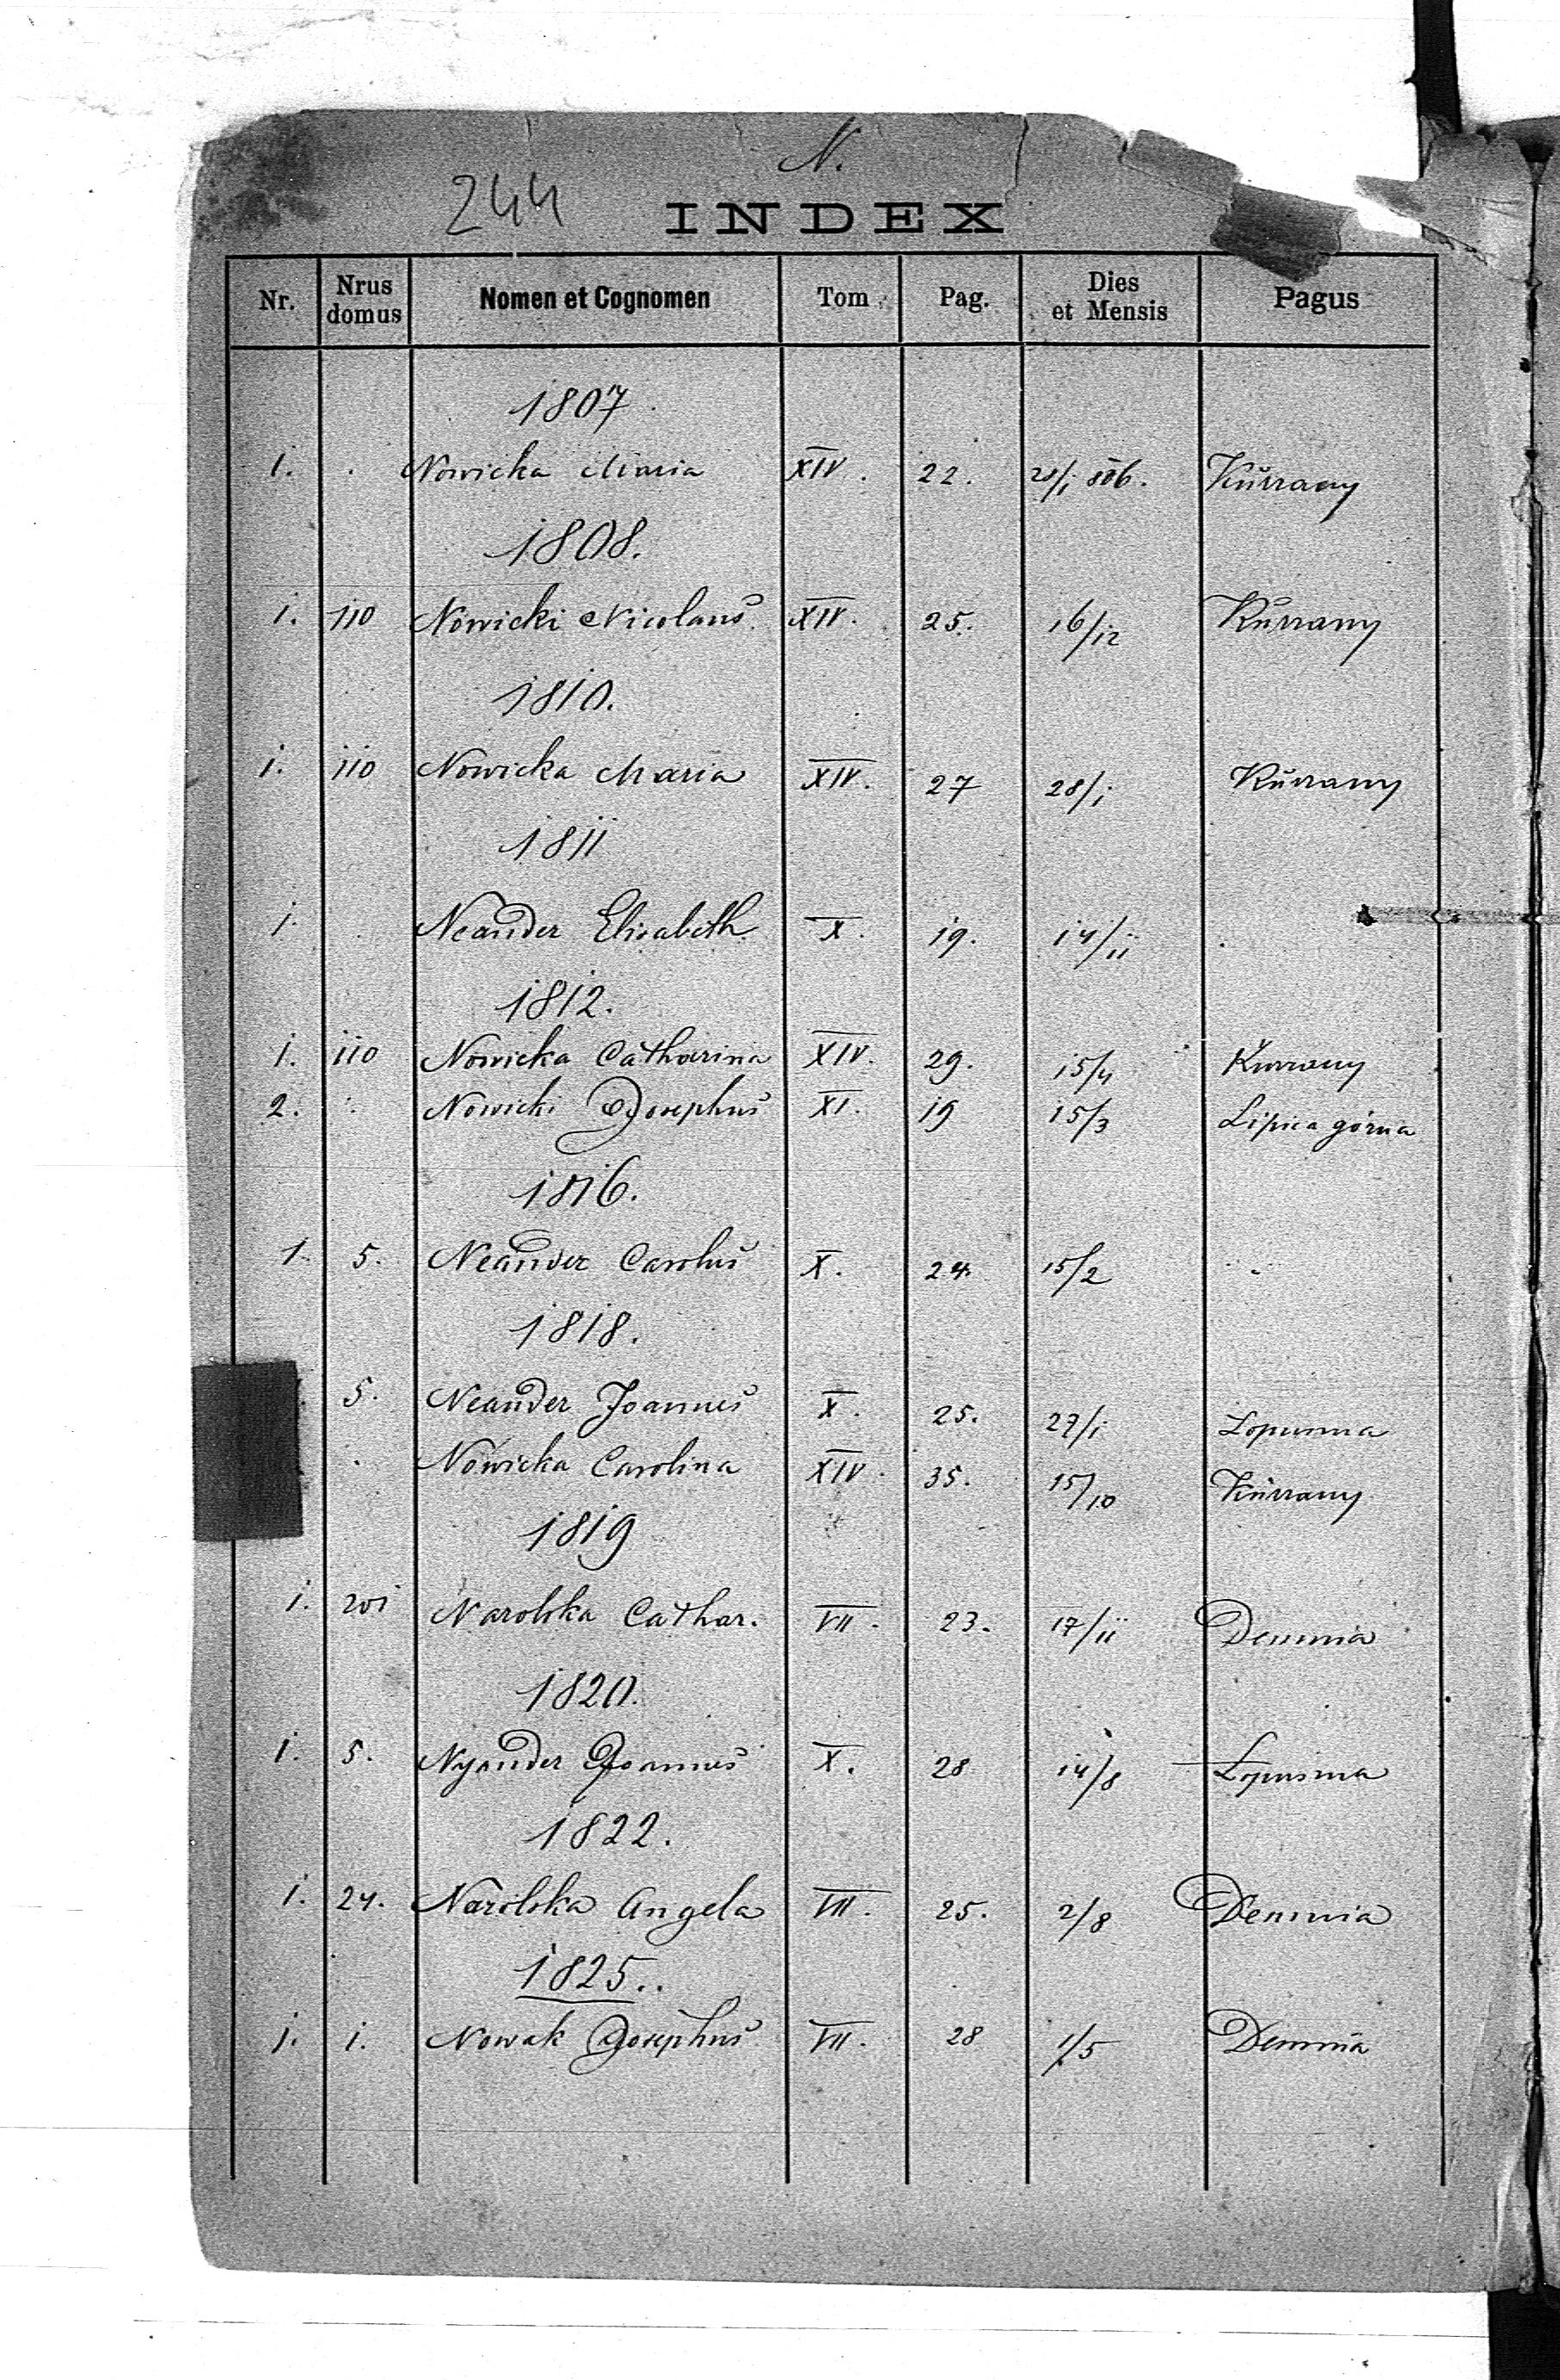 N.
244
INDEX
Nr. Nrus domus Nomen et Cognomen Tom Pag. Dies et Mensis Pagus
1807
1. . Nowicka Maria XIV. 22. 806. Kurrany
1808.
1. 110 Nowicki Nicolaus XIV. 25. 16/12 Kurrany
1810.
1. 110 Nowicka Maria XIV. 27 28/1 Kurrany
1811
1. . Neander Elisabeth X. 19. 14/11
1812.
1. 110 Nowicka Catharina XIV. 29. 15/4 Kurrany
2. Nowicki Josephus XI. 19 15/3 Lipica górna
1816.
1. 5. Neander Carolus X. 24. 15/2
1818.
5. Neander Joannes X. 25. 27/1 Lopusna
. Nowicka Carolina XIV. 35. 15/10 Kurrany
1819
1. 201 Narolska Cathar. VII. 23. 17/11 Demnia
1820.
1. 5. Nyander Joannes X. 28 14/8 Lopusna
1822.
1. 24. Narolska Angela VII. 25. 2/8 Demnia
1825..
1. 1. Nowak Josephus VII. 28 1/5 Demnia